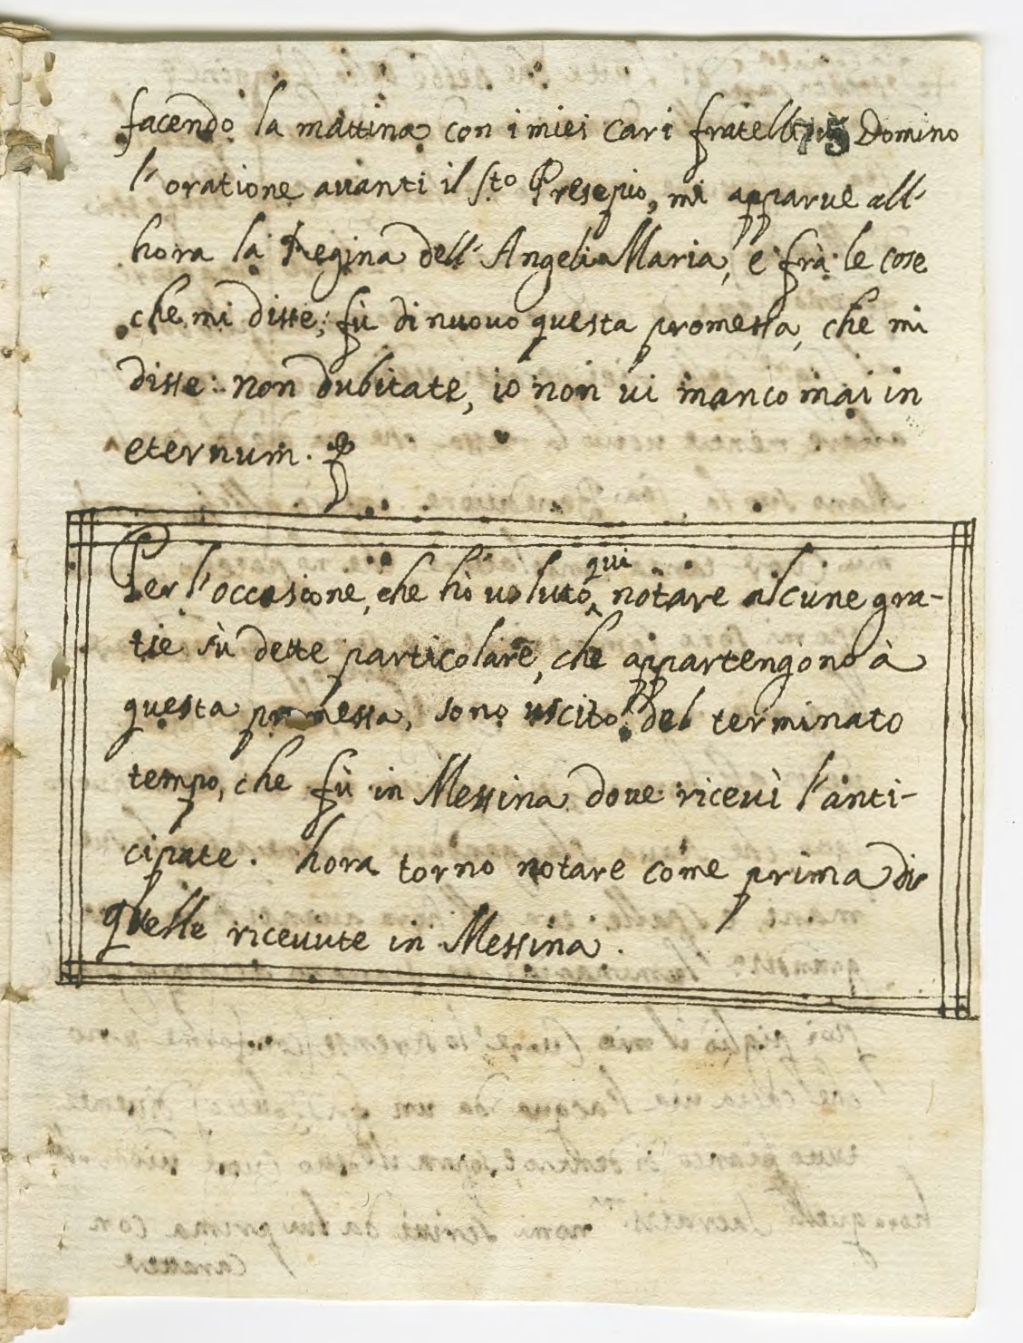 facendo la mattina con i miei cari fratelli in Domino
75
l'oratione auanti il S.to Presepio, mi apparue all'
hora la Regina dell'Angeli Maria, e frà le cose
che mi disse, fù di nuouo questa promessa, che mi
disse: non dubitate, io non ui manco mai in
eternum.
Per l'occasione, che hò uoluto qui notare alcune gra-
tie sù dette particolare, che appartengono à
questa promessa, sono uscito del terminato
tempo, che fù in Messina doue riceuì l'anti-
cipate. hora torno notare come prima di
quelle riceuute in Messina.